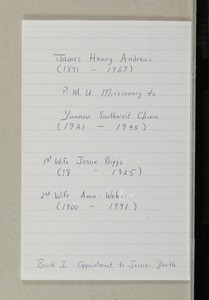 James Henry Andrews
(1891 - 1967)
P.M.U. Missionary to
Yunnan Southwest China
(1921 - 1945)
1st Wife Jessie Biggs
(18 - 1925)
2nd Wife Anna
(1900 - 1991)
Book I Appointment to Jessie's Death